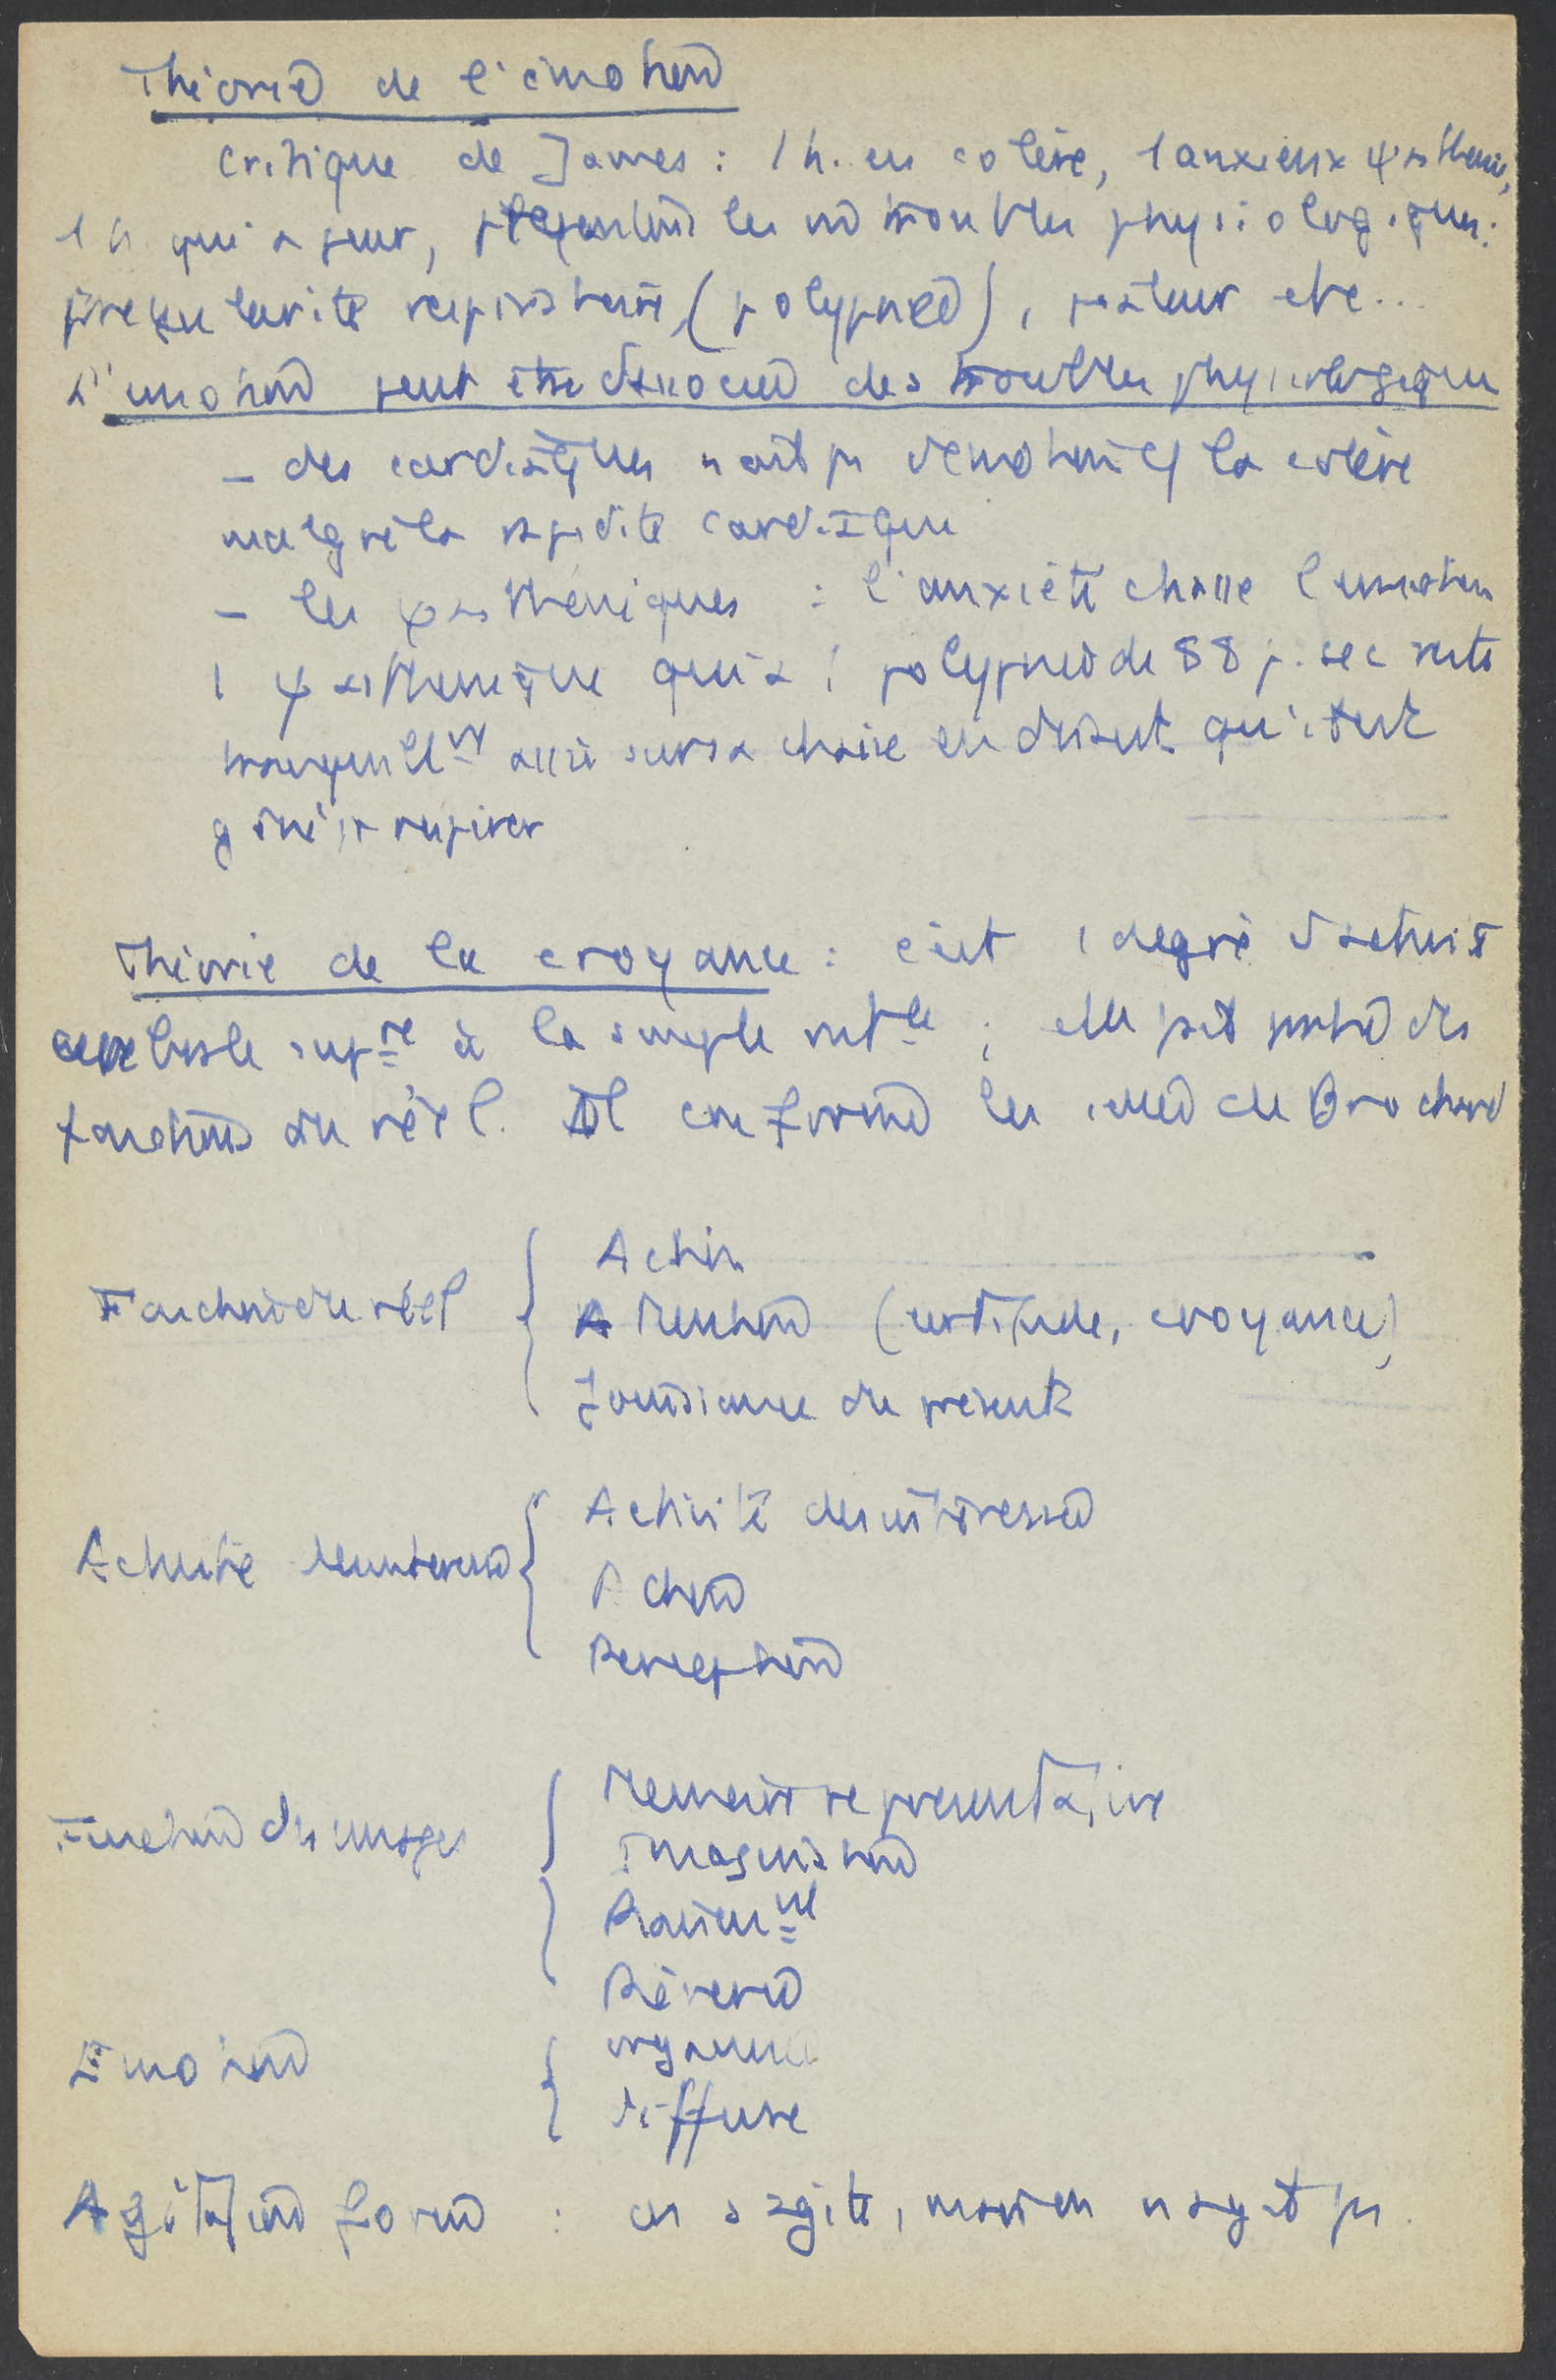 Théorie de l'émotion
Critique de James : 1 h. en colère, 1 anxieux ψasthénie,
1 h. qui a peur, présentent les m troubles physiologiques :
irrégularité respiratoire, (polypnée), pâleur etc...
L'émotion peut être dissociée des troubles physiologiques
– des cardiaques n'ont pas d'émotion la colère
malgré la rapidité cardiaque
– les ψasthéniques : l'anxiété chasse l'émotion
1 ψasthénique qui a 1 polypnée de 88 p. sec reste
tranquillt assis sur sa chaise en disant qu'il est
gêné pr respirer
Théorie de la croyance : c'est 1 degré d'activité
cérébrale supre à la simple ; elle fait partie des
fonctions du réel. Il confirme les idées de Brochard
Fonction du réel { Action
Attention (certitude, croyance)
Jouissance du présent
Activité désintéressée { Activité désintéressée
Action
Perception
Fonction des images { Mémoire représentative
Imagination
Raisonnt
Rêverie
Emotion { organique
diffuse
Agitation forcée : on s'agite, mais on n'agit pas.